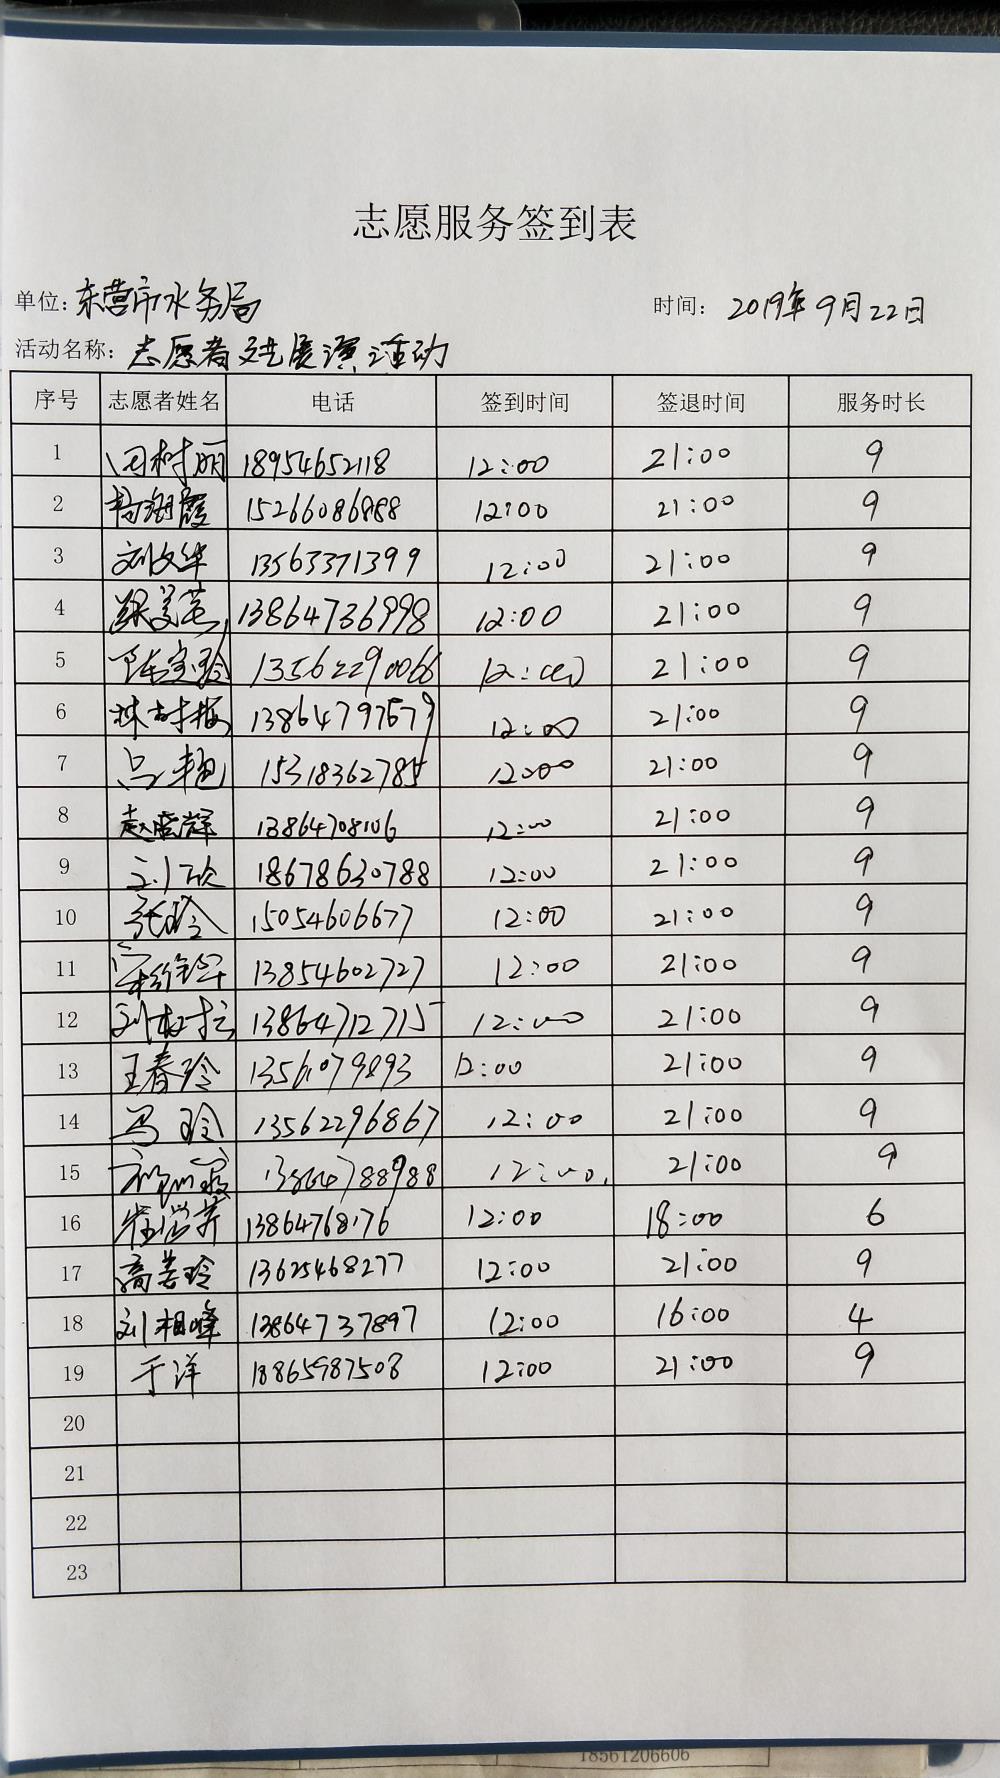 志愿服务签到表
单位: 东营市水务局 时间: 2019年9月22日
活动名称: 志愿者文艺展演活动
序号 志愿者姓名 电话 签到时间 签退时间 服务时长
1 田树丽 18954652118 12:00 21:00 9
2 杨海霞 15266086888 12:00 21:00 9
3 刘文华 13563371399 12:00 21:00 9
4 13864736998 12:00 21:00 9
5 陈宝玲 13562290066 12:00 21:00 9
6 林树梅 13864797679 12:00 21:00 9
7 吕艳 15318362785 12:00 21:00 9
8 赵晓辉 13864708106 12:00 21:00 9
9 刘欣 18678630788 12:00 21:00 9
10 张玲 15054606677 12:00 21:00 9
11 13854602727 12:00 21:00 9
12 13864712715 12:00 21:00 9
13 王春玲 13561079893 12:00 21:00 9
14 马玲 13562296867 12:00 21:00 9
15 13864788988 12:00 21:00 9
16 13864768176 12:00 18:00 6
17 高美玲 13625468277 12:00 21:00 9
18 刘相峰 13864737897 12:00 16:00 4
19 于洋 18865987508 12:00 21:00 9
20
21
22
23
18561206606